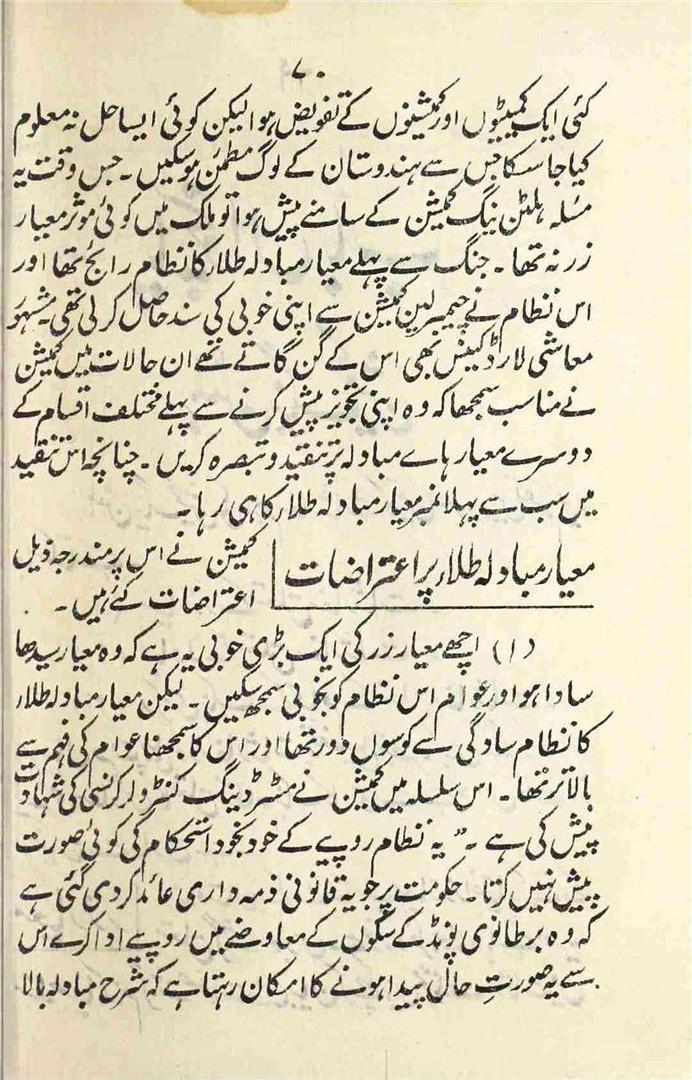 ۷۰
کئی ایک کمیٹیوں اور کمیشنوں کے تفویض ہوا لیکن کوئی ایسا حل نہ معلوم
کیا جا سکا جس سے ہندوستان کے لوگ مطمئن ہو سکیں۔ جس وقت یہ
مسٔلہ ہلٹن ینگ کمیشن کے سامنے پیش ہوا تو ملک میں کوئی موثر معیار
زر نہ تھا۔ جنگ سے پہلے معیار مبادلہ طلاء کا نظام رائج تھا اور
اس نظام نے چیمبرلین کمیشن سے اپنی خوبی کی سند حاصل کر لی تھی۔ مشہور
معاشی لارڈ کینس بھی اس کے گن گاتے تھے ان حالات میں کمیشن
نے مناسب سمجھا کہ وہ اپنی تجویز پیش کرنے سے پہلے مختلف اقسام کے
دوسرے معیار ہاے مبادلہ پر تنقید و تبصرہ کریں۔ چنانچہ اس تنقید
میں سب سے پہلا نمبر معیار مبادلہ طلاء کا ہی رہا۔
معیار مبادلہ طلاء پر اعتراضات
کمیشن نے اس پر مندرجہ ذیل
اعتراضات کئے ہیں۔
(۱) اچھے معیار زر کی ایک بڑی خوبی یہ ہے کہ وہ معیار سیدھا
سادا ہو اور عوام اس نظام کو بخوبی سمجھ سکیں۔ لیکن معیار مبادلہ طلاء
کا نظام سادگی سے کوسوں دور تھا اور اس کا سمجھنا عوام کی فہم سے
بالا تر تھا۔ اس سلسلہ میں کمیشن نے مسٹر ڈیننگ کنٹرولر کرنسی کی شہادت
پیش کی ہے۔ "یہ نظام روپے کے خود بخود استحکام کی کوئی صورت
پیش نہیں کرتا۔ حکومت پر جو یہ قانونی ذمہ داری عائد کر دی گئی ہے
کہ وہ برطانوی پونڈ کے سکوں کے معاوضے میں روپے ادا کرے اس
سے یہ صورتِ حال پیدا ہونے کا امکان رہتا ہے کہ شرح مبادلہ بالا